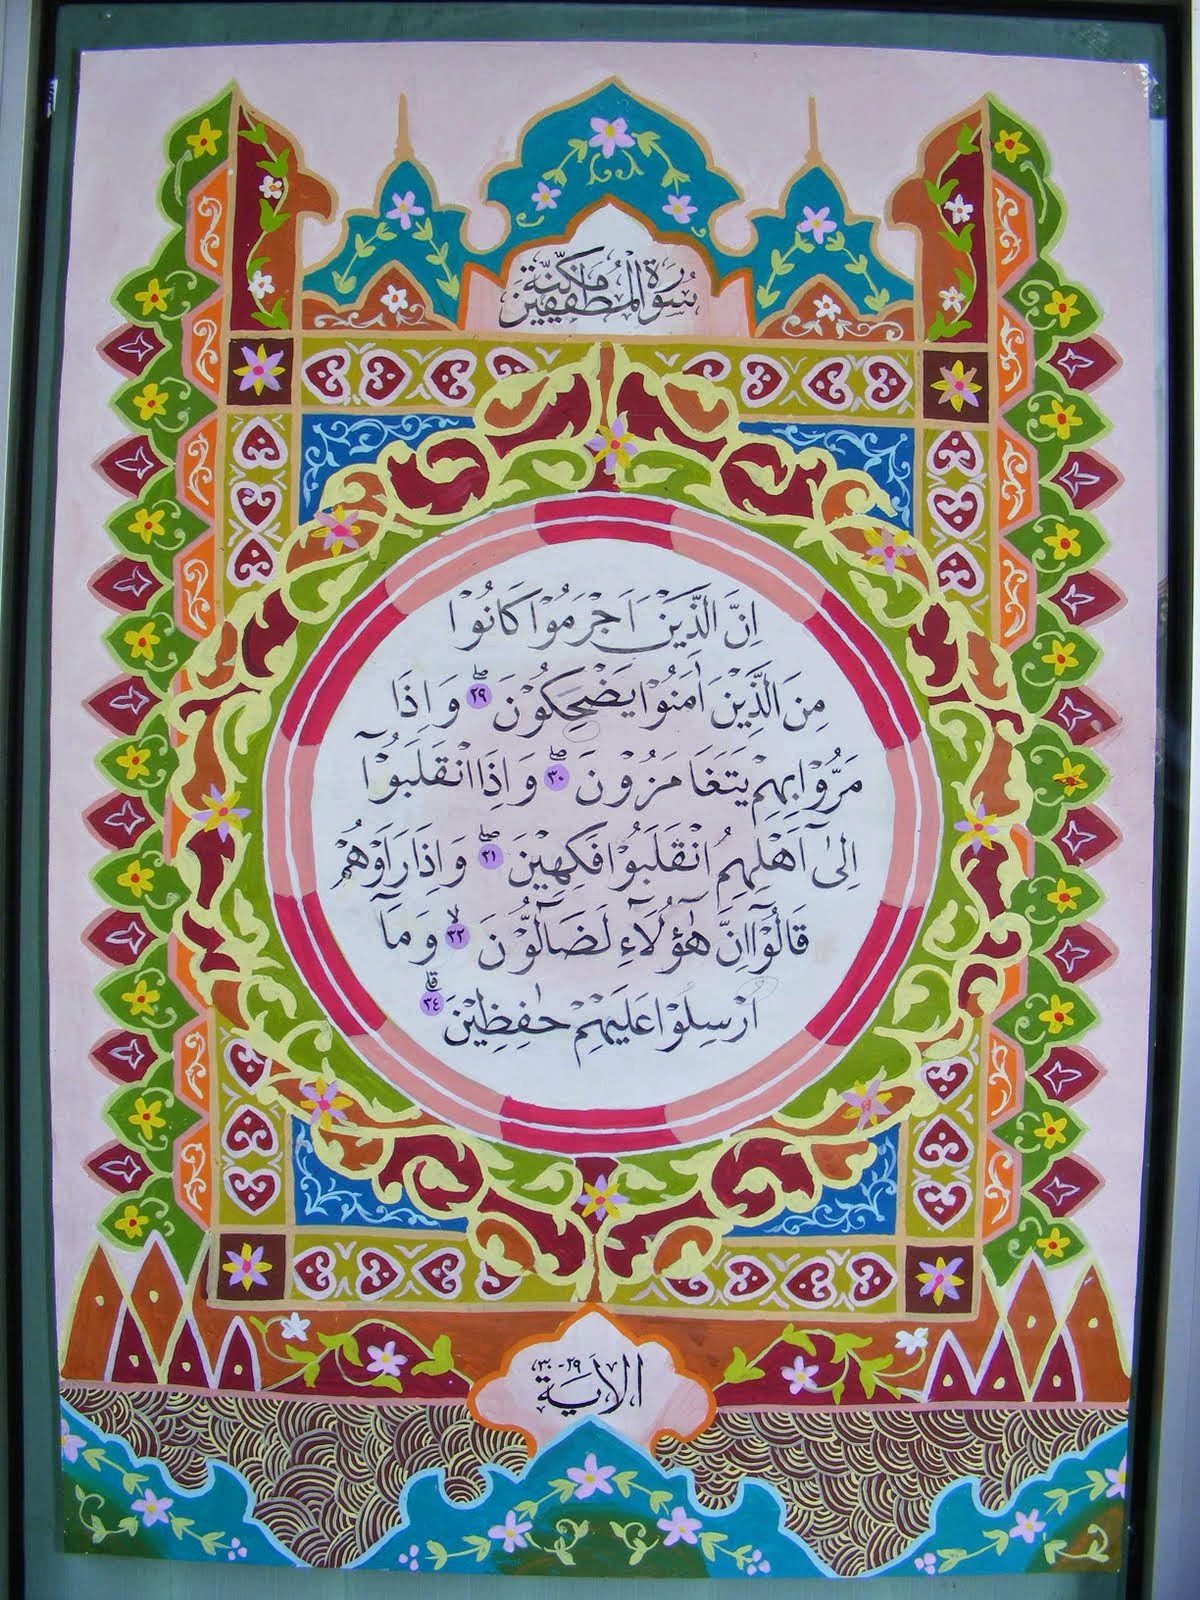 سُوْرَةُ الْمُطَفِّفِيْنَ مَكِّيَّة
اِنَّ الَّذِيْنَ اَجْرَمُوْا كَانُوْا
مِنَ الَّذِيْنَ اٰمَنُوْا يَضْحَكُوْنَۖ ٢٩ وَاِذَا
مَرُّوْا بِهِمْ يَتَغَامَزُوْنَۖ ٣٠ وَاِذَا انْقَلَبُوْٓا
اِلٰٓى اَهْلِهِمُ انْقَلَبُوْا فَكِهِيْنَۖ ٣١ وَاِذَا رَاَوْهُمْ
قَالُوْٓا اِنَّ هٰٓؤُلَاۤءِ لَضَاۤلُّوْنَۙ ٣٢ وَمَآ
اُرْسِلُوْا عَلَيْهِمْ حٰفِظِيْنَۗ ٣٤
الاَيَة ٢٩-٣٠